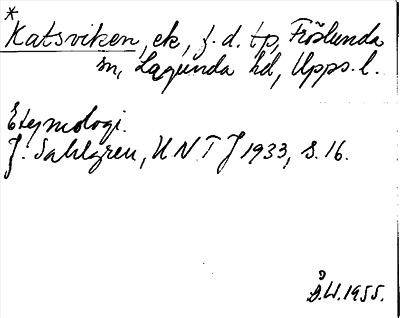 *
Katsviken, ek, f.d. tp, Fröslunda
sn, Lagunda hd, Upps. l.
Etymologi.
J. Sahlgren, UNT J 1933, s. 16.
Å.W. 1955.